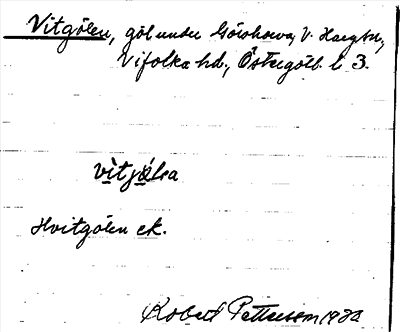 Vitgölen, göl under Görshorva, V. Harg sn,
Vifolka hd., Östergötl. l 3.
vìtjǿlea
Hvitgölen ek.
Robert Pettersson 1932